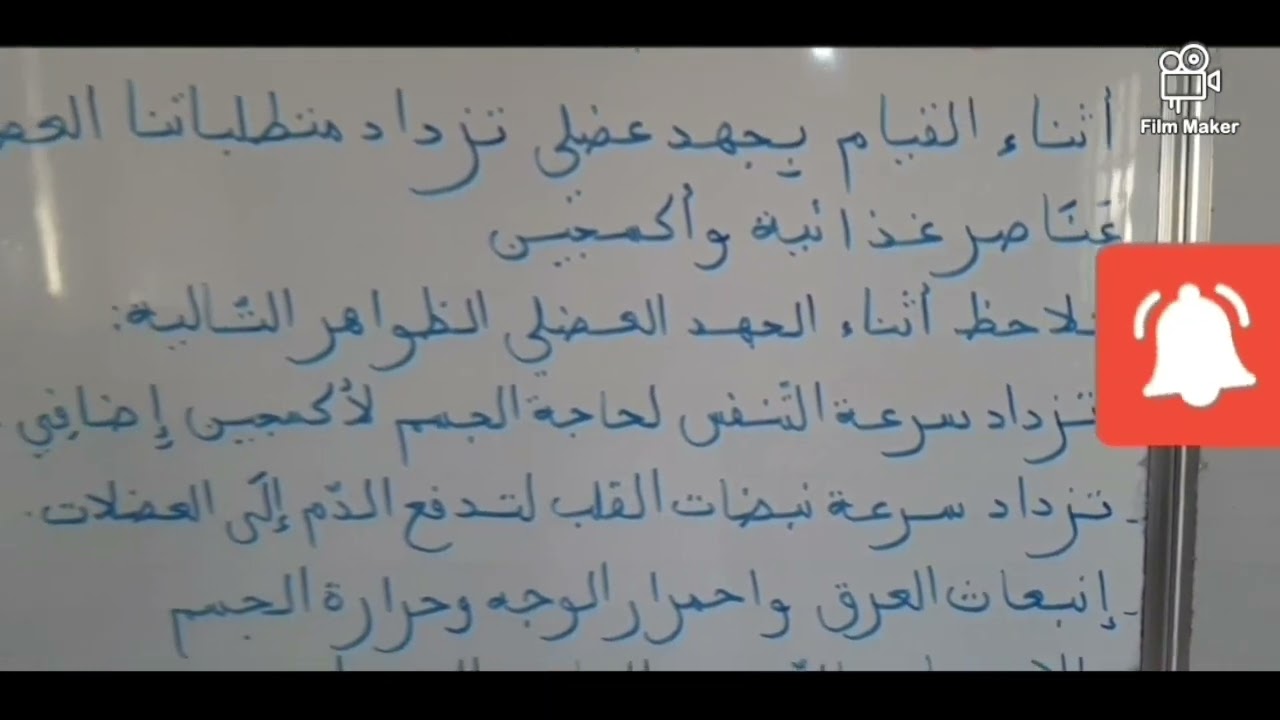 أثناء القيام بجهد عضلي تزداد متطلباتنا
عَنَاصر غذائية وأكسجين
نلاحظ أثناء الجهد العضلي الظواهر التّالية:
تزداد سرعة التّنفس لحاجة الجسم لأُكسجين إضافِي
- تزداد سرعة نبضات القلب لتدفع الدّم إلَى العضلات.
- إنبعاث العرق واحمرار الوجه وحرارة الجسم
Film Maker